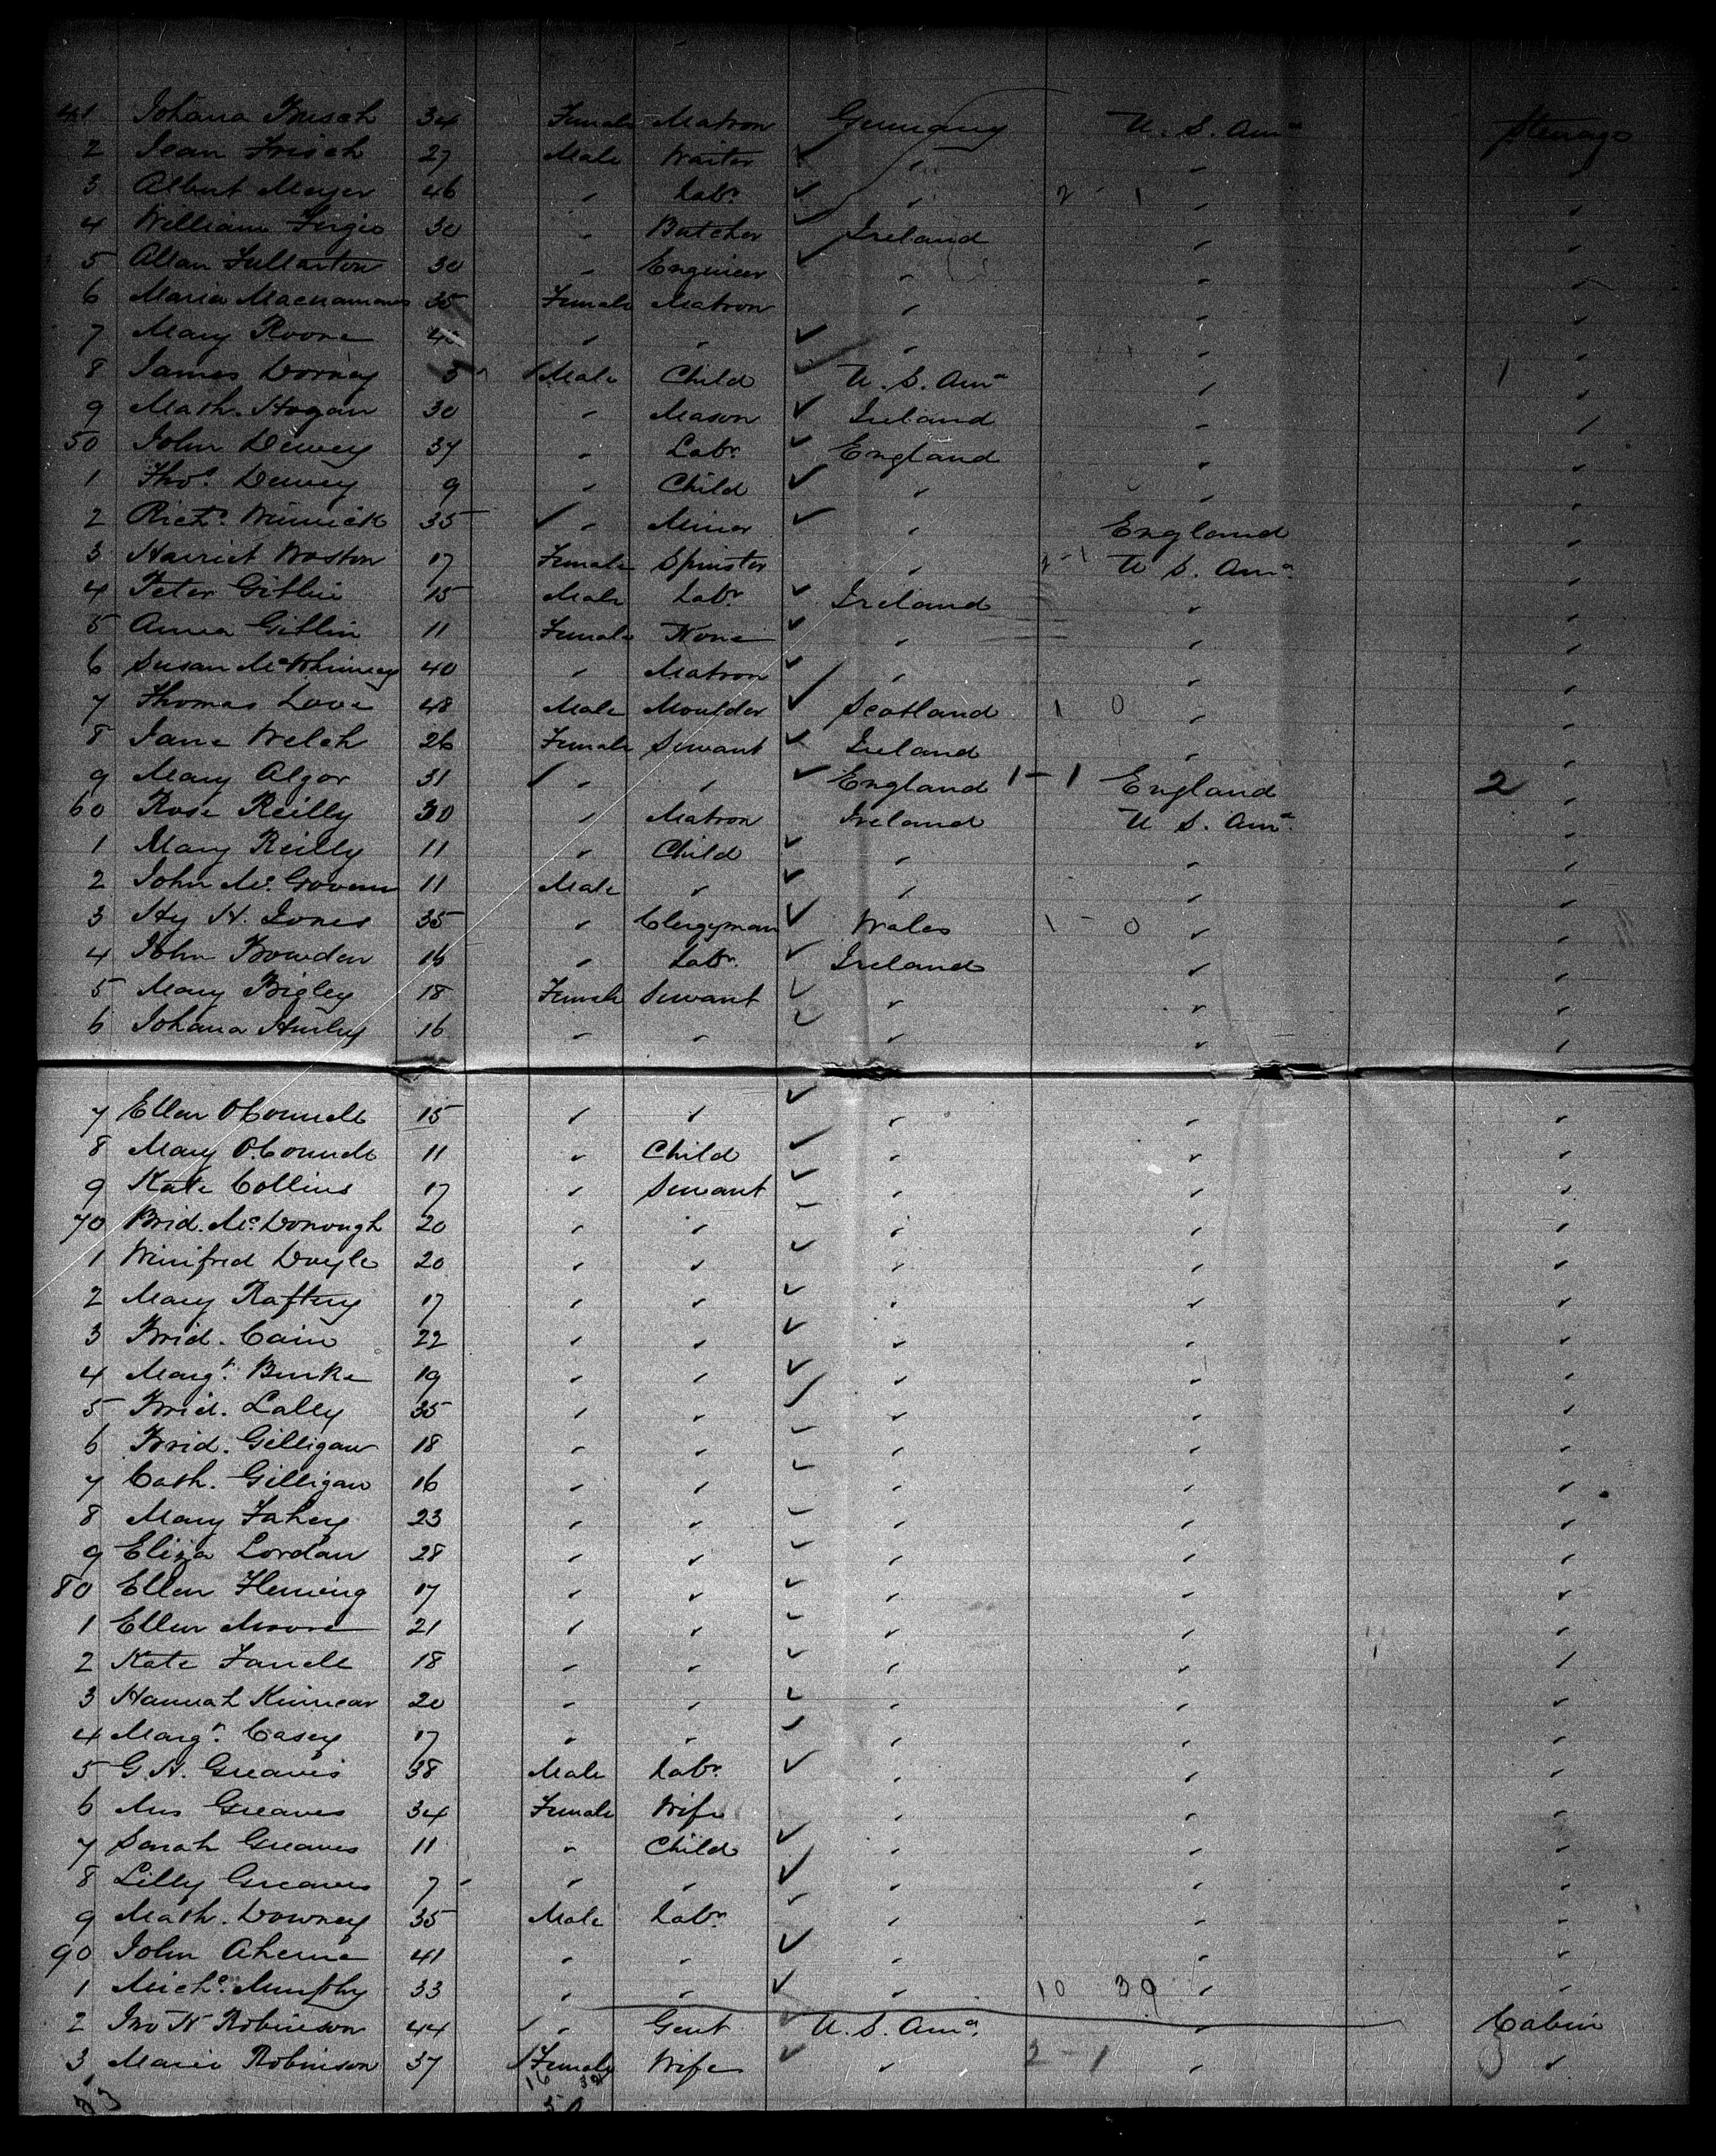 41 Johana Busch 34 Female Matron Germany U. S. Ama Steerage
2 Jean Frisch 27 Male Waiter ✓ " "
3 Albert Meyer 46 " Labr ✓ " 2 - 1 " "
4 William 30 " Butcher ✓ Ireland " "
5 Allan Fullarton 30 " Engineer ✓ " " "
6 Maria Macnamara 35 Female Matron " " "
7 Mary Roone " " ✓ " " "
8 James Dorney Male Child ✓ U. S. Ama " "
9 Math. Hogan 30 " Mason ✓ Ireland " "
50 John Dewey 37 " Labr ✓ England " "
1 Thos. Dewey 9 " Child ✓ " " "
2 Richd. 35 ✓ " Miner ✓ " England "
3 Harriet Weston 17 Female Spinster " U S. Ama "
4 Peter Giblin 15 Male Labr ✓ Ireland " "
5 Anna Giblin 11 Female None ✓ " " "
6 Susan McWhinney 40 " Matron ✓ " " "
7 Thomas Love 48 Male Moulder ✓ Scotland 1 0 " "
8 Jane Welch 26 Female Servant ✓ Ireland " "
9 Mary Algor 31 ✓ " " ✓ England 1 - 1 England 2 "
60 Rose Reilly 30 " Matron Ireland U S. Ama "
1 Mary Reilly 11 " Child ✓ " " "
2 John Mc. Govern 11 Male " ✓ " " "
3 Hy H. Jones 35 " Clergyman ✓ Wales 1 - 0 " "
4 John Bowden 16 " Labr ✓ Ireland " "
5 Mary Bigley 18 Female Servant ✓ " " "
6 Johana Hurley 16 " " ✓ " " "
7 Ellen OConnell 15 " " ✓ " " "
8 Mary O.Connell 11 " Child ✓ " " "
9 Kate Collins 17 " Servant ✓ " " "
70 Brid. Mc.Donough 20 " " ✓ " " "
1 Winifred Doyle 20 " " ✓ " " "
2 Mary Raftery 17 " " ✓ " " "
3 Brid. Cain 22 " " ✓ " " "
4 Margt. Burke 19 " " ✓ " " "
5 Brid. Lally 35 " " ✓ " " "
6 Brid. Gilligan 18 " " ✓ " " "
7 Cath. Gilligan 16 " " ✓ " " "
8 Mary Fahey 23 " " ✓ " " "
9 Eliza Lordan 28 " " ✓ " " "
80 Ellen Fleming 17 " " ✓ " " "
1 Ellen Moore 21 " " ✓ " " "
2 Kate Farrell 18 " " ✓ " " "
3 Hannah Kinnear 20 " " ✓ " " "
4 Margt. Casey 17 " " ✓ " " "
5 G. H. Greaves 38 Male Labr ✓ " " "
6 Mrs Greaves 34 Female Wife " " "
7 Sarah Greaves 11 " Child ✓ " " "
8 Lilly Greaves 7 " " ✓ " " "
9 Math. Downey 35 Male Labr ✓ " " "
90 John Aherne 41 " " ✓ " " "
1 Michl. Murphy 33 " " ✓ " 10 39 " "
2 Jno H Robinson 44 ✓ " Gent ✓ U. S. Ama. " Cabin
3 Marie Robinson 37 Female Wife ✓ " 2 - 1 " "